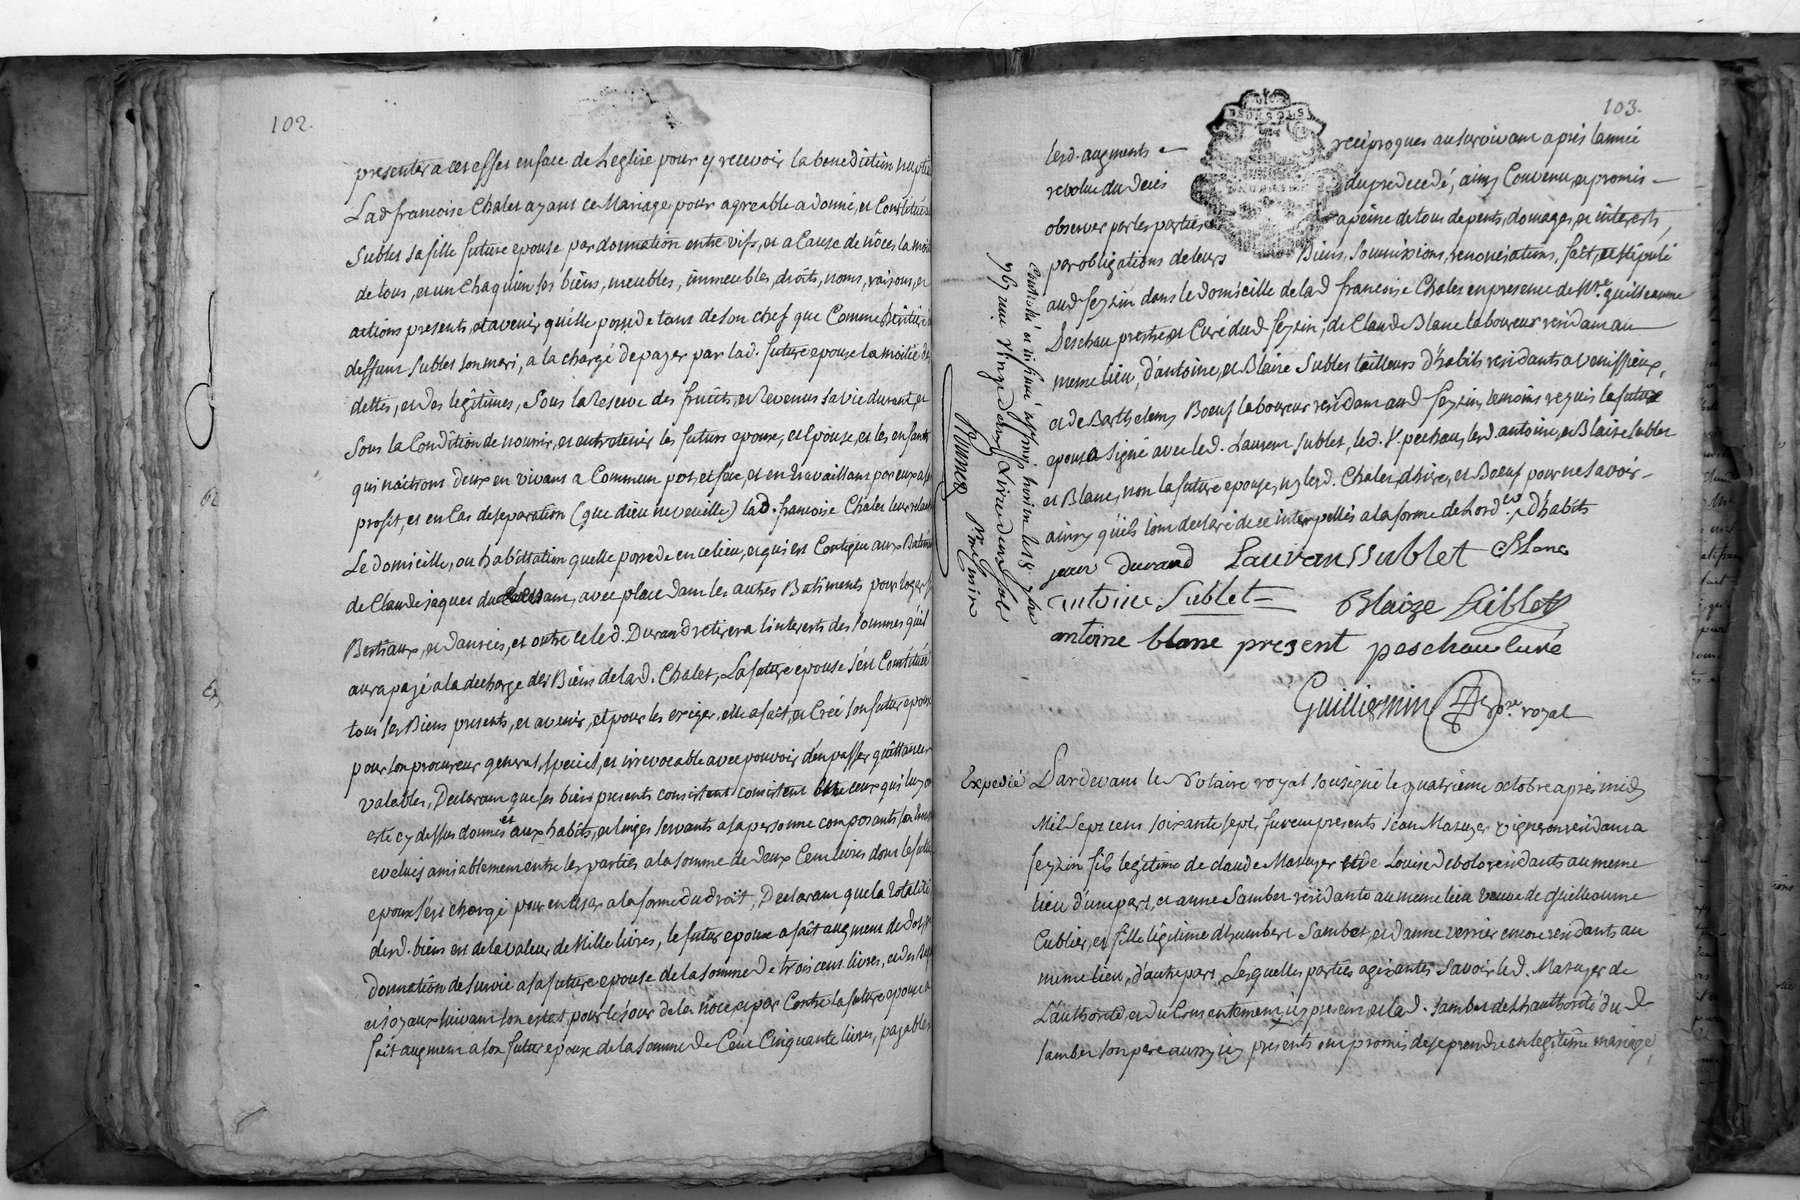 102
presenter a cet effet en face de Leglise pour y recevoir la benediction nuptia
Lad francoise Chalet ayant ce Mariage pour agreable a donné, et Constitué a
Sublet sa fille future epouse par donnation entre vifs, et a Cause de nôces la moi
de tous, et un Chaqu'un ses biens, meubles, immeubles, droits, noms, raisons, et
actions presents, et avenir, quelle possede tant de son chef que Comme heritiere
deffunt Sublet son mari, a la charge de payer par lad. future epouse la moitié de
dettes, et des legitimes, Sous la Reserve des fruits, et Revenus sa vie durant, et
Sous la Condition de nourrir, et entretenir les futurs epoux, et Epouse, et les enfants
qui naitront deux en vivant a Commun pot, et feu, et en travaillant par eux a s
profit, et en Cas de separation (que dieu ne veuille) lad. francoise Chalet leur relach
Le domicille, ou habittation quelle possede en ce lieu, et qui est Contigue aux Batim
de Claude jaques du avec place dans les autres Batiments pour loger
Bestiaux, et danrées, et outre ce led. Durand retirera l'interets des sommes qu'il
aura payé a la decharge des Biens de lad. Chalet, La future epouse s'est Constitué
tous ses Biens presents, et avenir, et pour les exiger, elle a fait, et Créé son futur epoux
pour son procureur general, special, et irrevocable avec pouvoir d'en passer quittances
valables, Declarant que ses biens presents consistent consistent en ceux qui luy on
esté cy dessus donnés et aux habits, et linges servants a sa personne composants son
evalués amiablement entre les parties a la somme de deux Cent livres dont le futu
epoux s'est chargé pour en user a la forme du droit, Declarant que la totalité
desd. biens est de la valeur de Mille livres, le futur epoux a fait augment de dot
donnation de survie a sa future epouse de la somme de trois cent livres, et des
et joyaux suivant son estat pour le jour de la nôce, et par Contre la future epouse a
fait augment a son futur epoux de la somme de Cent Cinquante livres, payables
103.
lesd. augments reciproques au survivant après lannée
revolue du deces du predecedé, ainsy Convenu, et promis
observer par les parties a peine de tous depents, domages, et interets,
par obligations de leurs Biens, soumissions, renonciations, fait, et stipulé
aud feyzin dans le domicille de lad francoise Chalet en presence de Mre guilleaume
Deschau prestre, et Curé dud feyzin, de Claude Blanc laboureur residant au
meme lieu, d'antoine, et Blaise Sublet tailleurs d'habits residants a venissieux,
et de Barthelemy Boeuf laboureur residant aud feyzin, temoins requis le futur
epoux a signé avec led. Laurent Sublet, led. Sr peschau, lesd. antoine, et Blaise Sublet
et Blanc, non la future epouse, ny lesd. Chalet, et Boeuf pour ne savoir
ainsy quils l'ont declaré de ce interpellés a la forme de Lord.ce d'habits
jean durand Lauran Ssublet Blanc
antoine Sublet Blaize Sublet
antoine blanc present peschau curé
Guilliermin nre. royal
Controllé et insinué a st simph. d'ozon le 18 7bre
1767 reçu vingt deux livres deux sol
Expedié Pardevant le Notaire royal soussigné le quatrieme octobre apres midy
Mil sept cent soixante sept, furent presents jean Mazuyer vigneron residant a
feyzin fils legitime de claude Mazuyer et de Louise debolo residants au meme
lieu d'une part, et anne Sambet residante au meme lieu veuve de guilleaume
Cublier, et fille legitime d'humbert Sambet, et d'anne verrier encore residants au
meme lieu, d'autre part, Lesquelles parties agissantes savoir led. Mazuyer de
L'authorité, et du Consentement icy present, et lad. Sambet de L'authorité dud
Sambet son pere aussy icy presents ont promis de se prendre en legitime mariage,